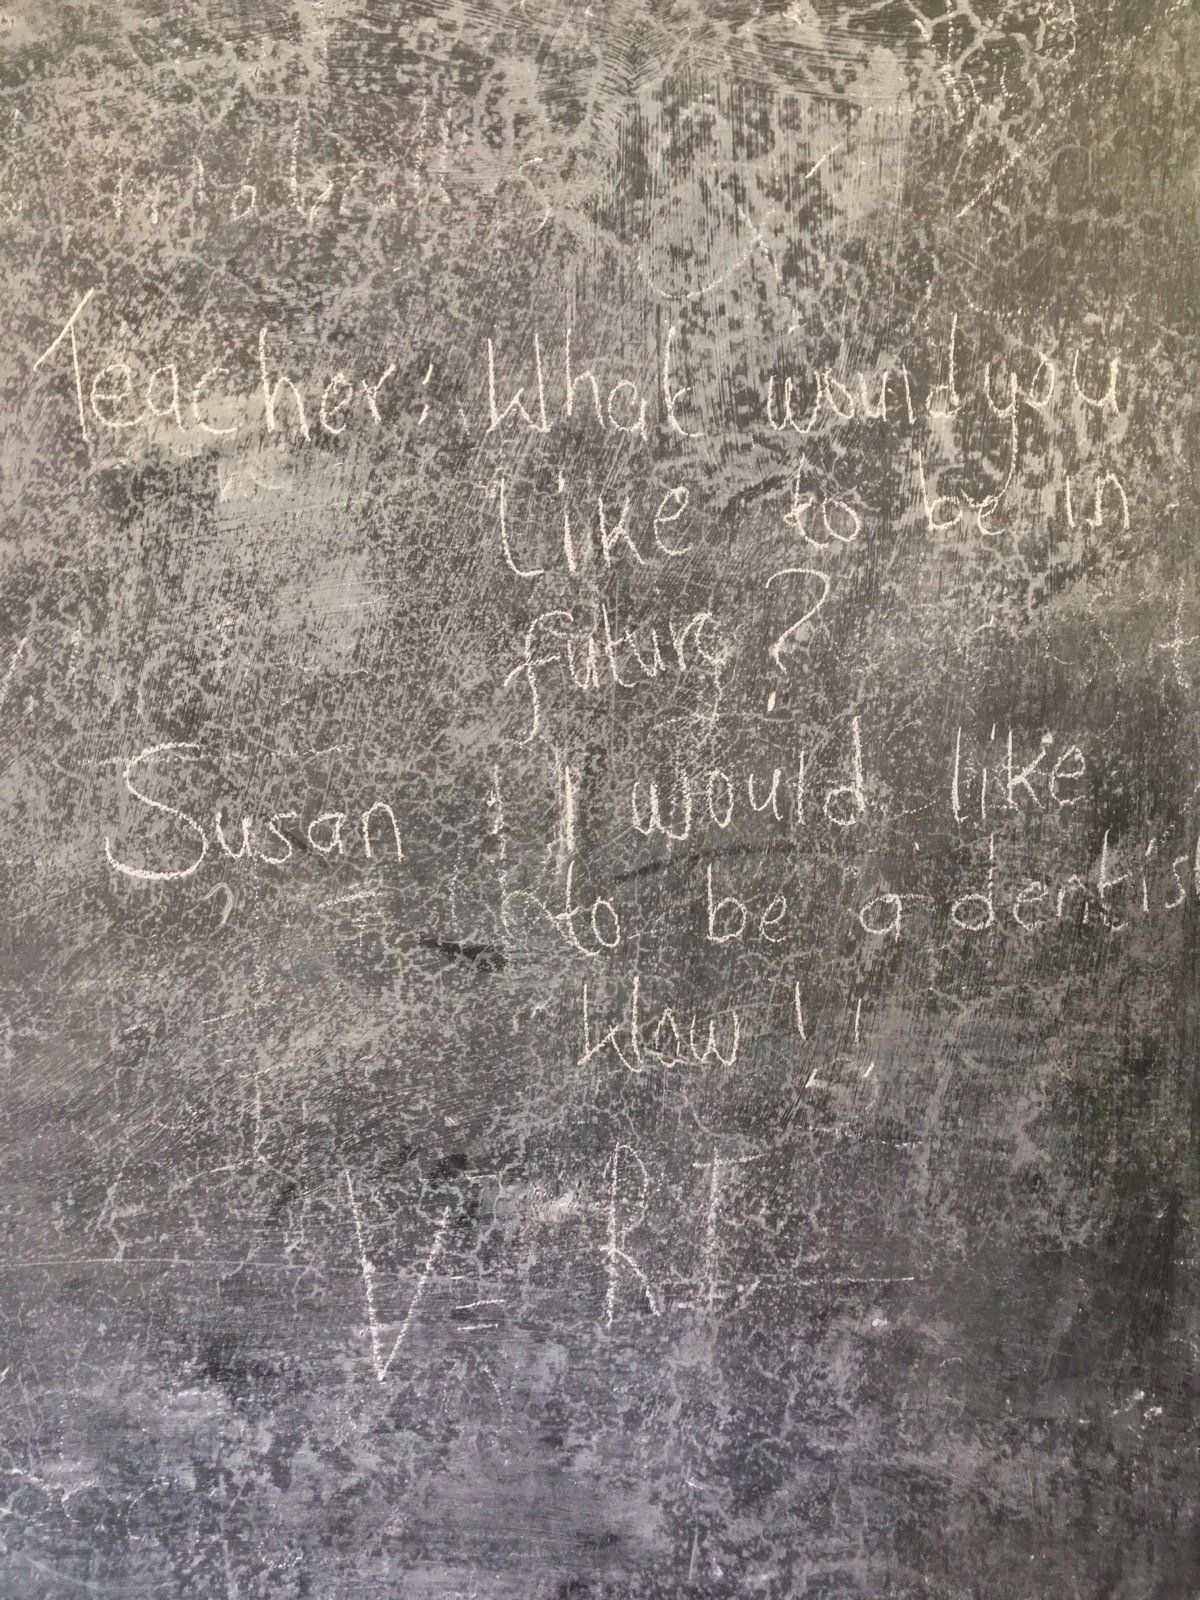 Teacher: What would you
like to be in
future?
Susan : I would like
to be a dentist
Wow !!
V = RI